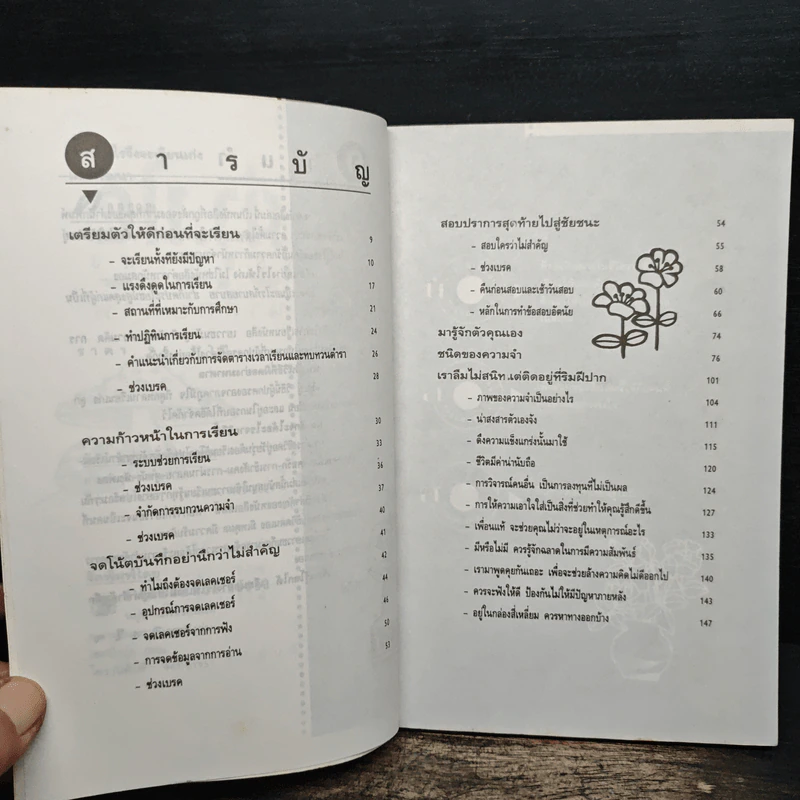 สารบัญ
เตรียมตัวให้ดีก่อนที่จะเรียน 9
- จะเรียนทั้งทียังมีปัญหา 10
- แรงดึงดูดในการเรียน 17
- สถานที่ที่เหมาะกับการศึกษา 21
- ทำปฏิทินการเรียน 24
- คำแนะนำเกี่ยวกับการจัดตารางเวลาเรียนและทบทวนตำรา 26
- ช่วงเบรค 28
ความก้าวหน้าในการเรียน 30
- ระบบช่วยการเรียน 33
- ช่วงเบรค 36
- จำกัดการรบกวนความจำ 37
- ช่วงเบรค 40
จดโน้ตบันทึกอย่านึกว่าไม่สำคัญ 41
- ทำไมถึงต้องจดเลคเชอร์ 42
- อุปกรณ์การจดเลคเชอร์ 44
- จดเลคเชอร์จากการฟัง 46
- การจดข้อมูลจากการอ่าน 50
- ช่วงเบรค 53
สอบปราการสุดท้ายไปสู่ชัยชนะ 54
- สอบใครว่าไม่สำคัญ 55
- ช่วงเบรค 58
- คืนก่อนสอบและเช้าวันสอบ 60
- หลักในการทำข้อสอบอัตนัย 66
มารู้จักตัวคุณเอง 74
ชนิดของความจำ 76
เราลืมไม่สนิท แต่ติดอยู่ที่ริมฝีปาก 101
- ภาพของความจำเป็นอย่างไร 104
- น่าสงสารตัวเองจัง 111
- ดึงความแข็งแกร่งนั้นมาใช้ 115
- ชีวิตมีค่าน่านับถือ 120
- การวิจารณ์คนอื่น เป็นการลงทุนที่ไม่เป็นผล 124
- การให้ความเอาใจใส่เป็นสิ่งที่ช่วยทำให้คุณรู้สึกดีขึ้น 127
- เพื่อนแท้ จะช่วยคุณไม่ว่าจะอยู่ในเหตุการณ์อะไร 133
- มีหรือไม่มี ควรรู้จักฉลาดในการมีความสัมพันธ์ 135
- เรามาพูดคุยกันเถอะ เพื่อจะช่วยล้างความคิดไม่ดีออกไป 140
- ควรจะฟังให้ดี ป้องกันไม่ให้มีปัญหาภายหลัง 143
- อยู่ในกล่องสี่เหลี่ยม ควรหาทางออกบ้าง 147